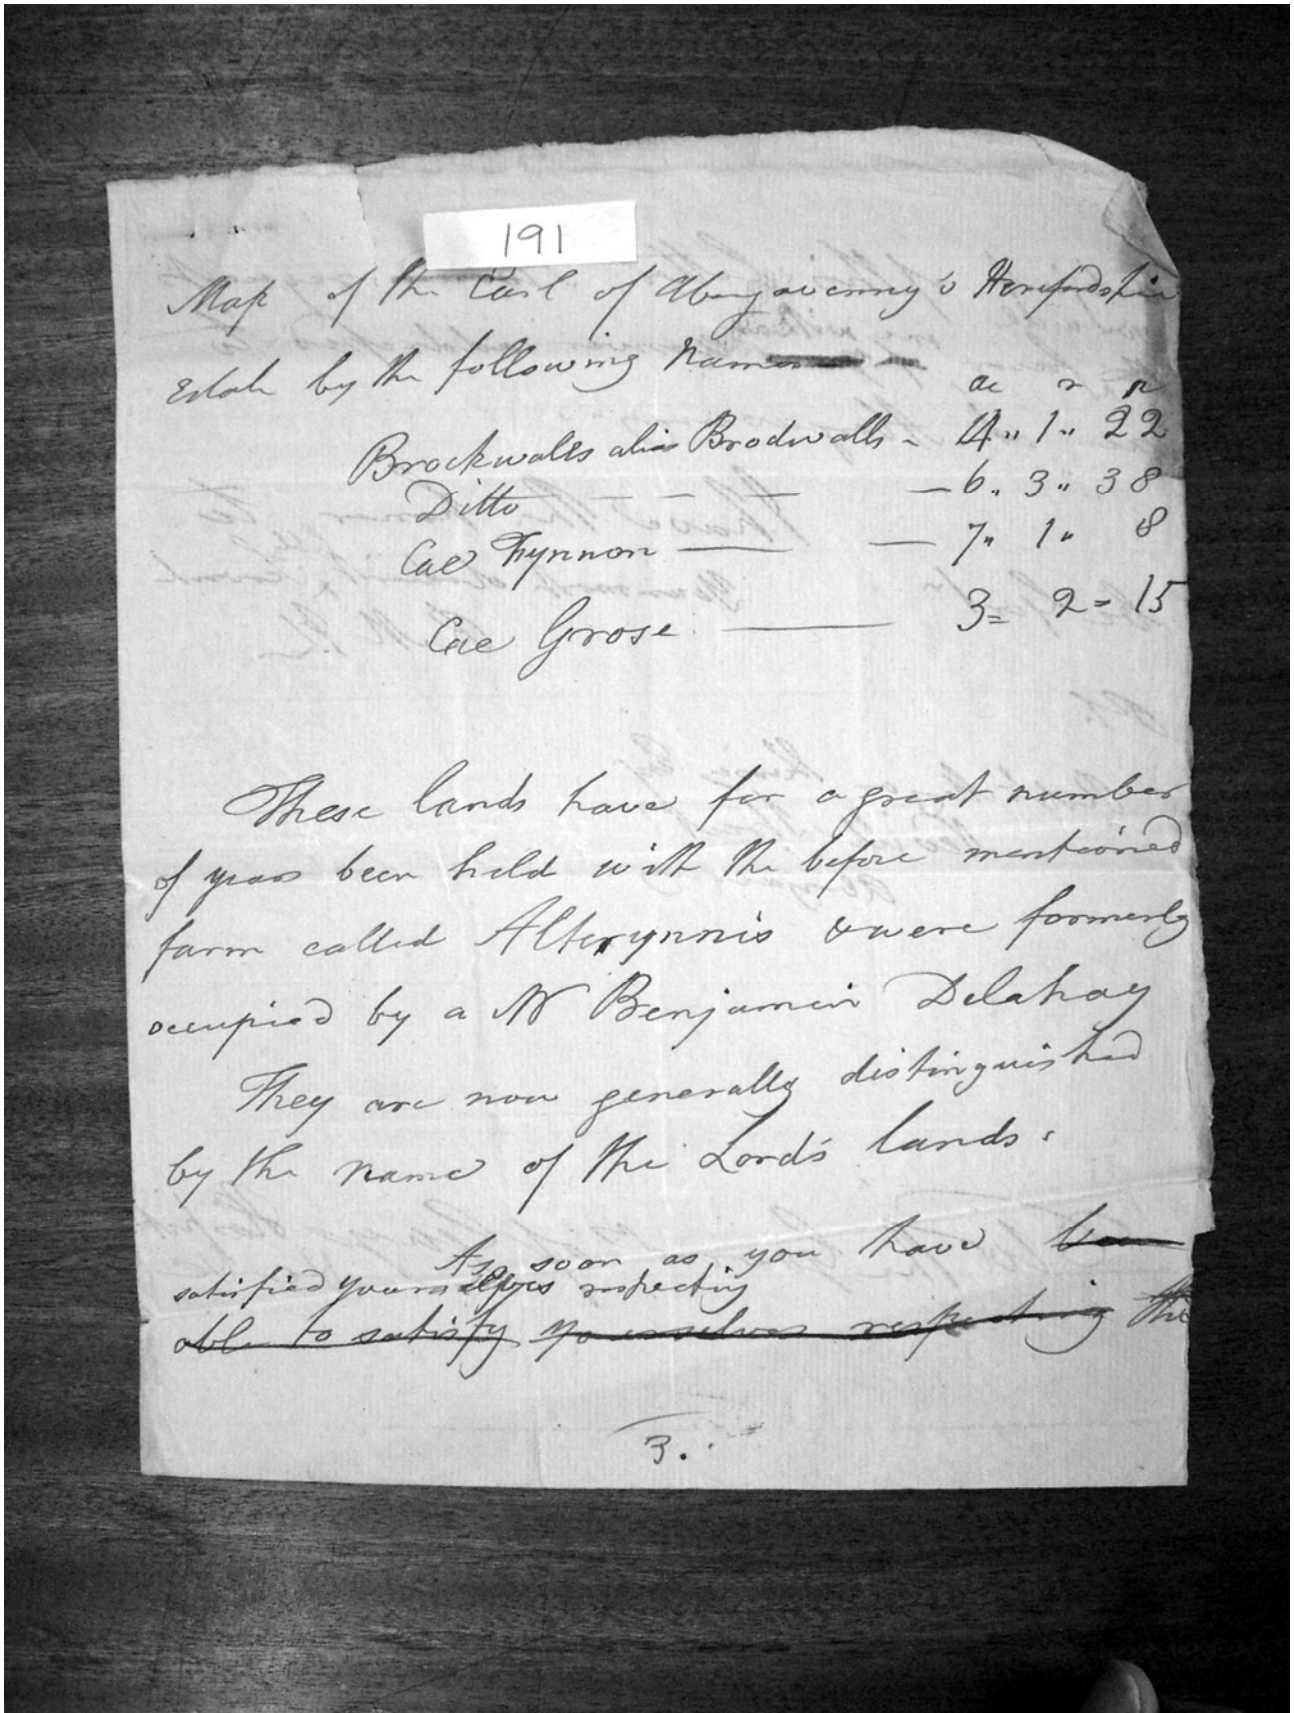 191
Map of the Earl of Abergavenny's Herefordshire
Estate by the following Names
a r p
Brockwalls alias Brodwalls - 4 " 1 " 22
Ditto - - - - 6 " 3 " 38
Cae Fynnon — — 7 " 1 " 8
Cae Grose — 3 = 2 = 15
These lands have for a great number
of years been held with the before mentioned
farm called Alterynnis & were formerly
occupied by a Mr Benjamin Delahay
They are now generally distinguished
by the name of the Lord's lands.
As soon as you have been
satisfied yourselves respecting
able to satisfy yourselves respecting the
3.